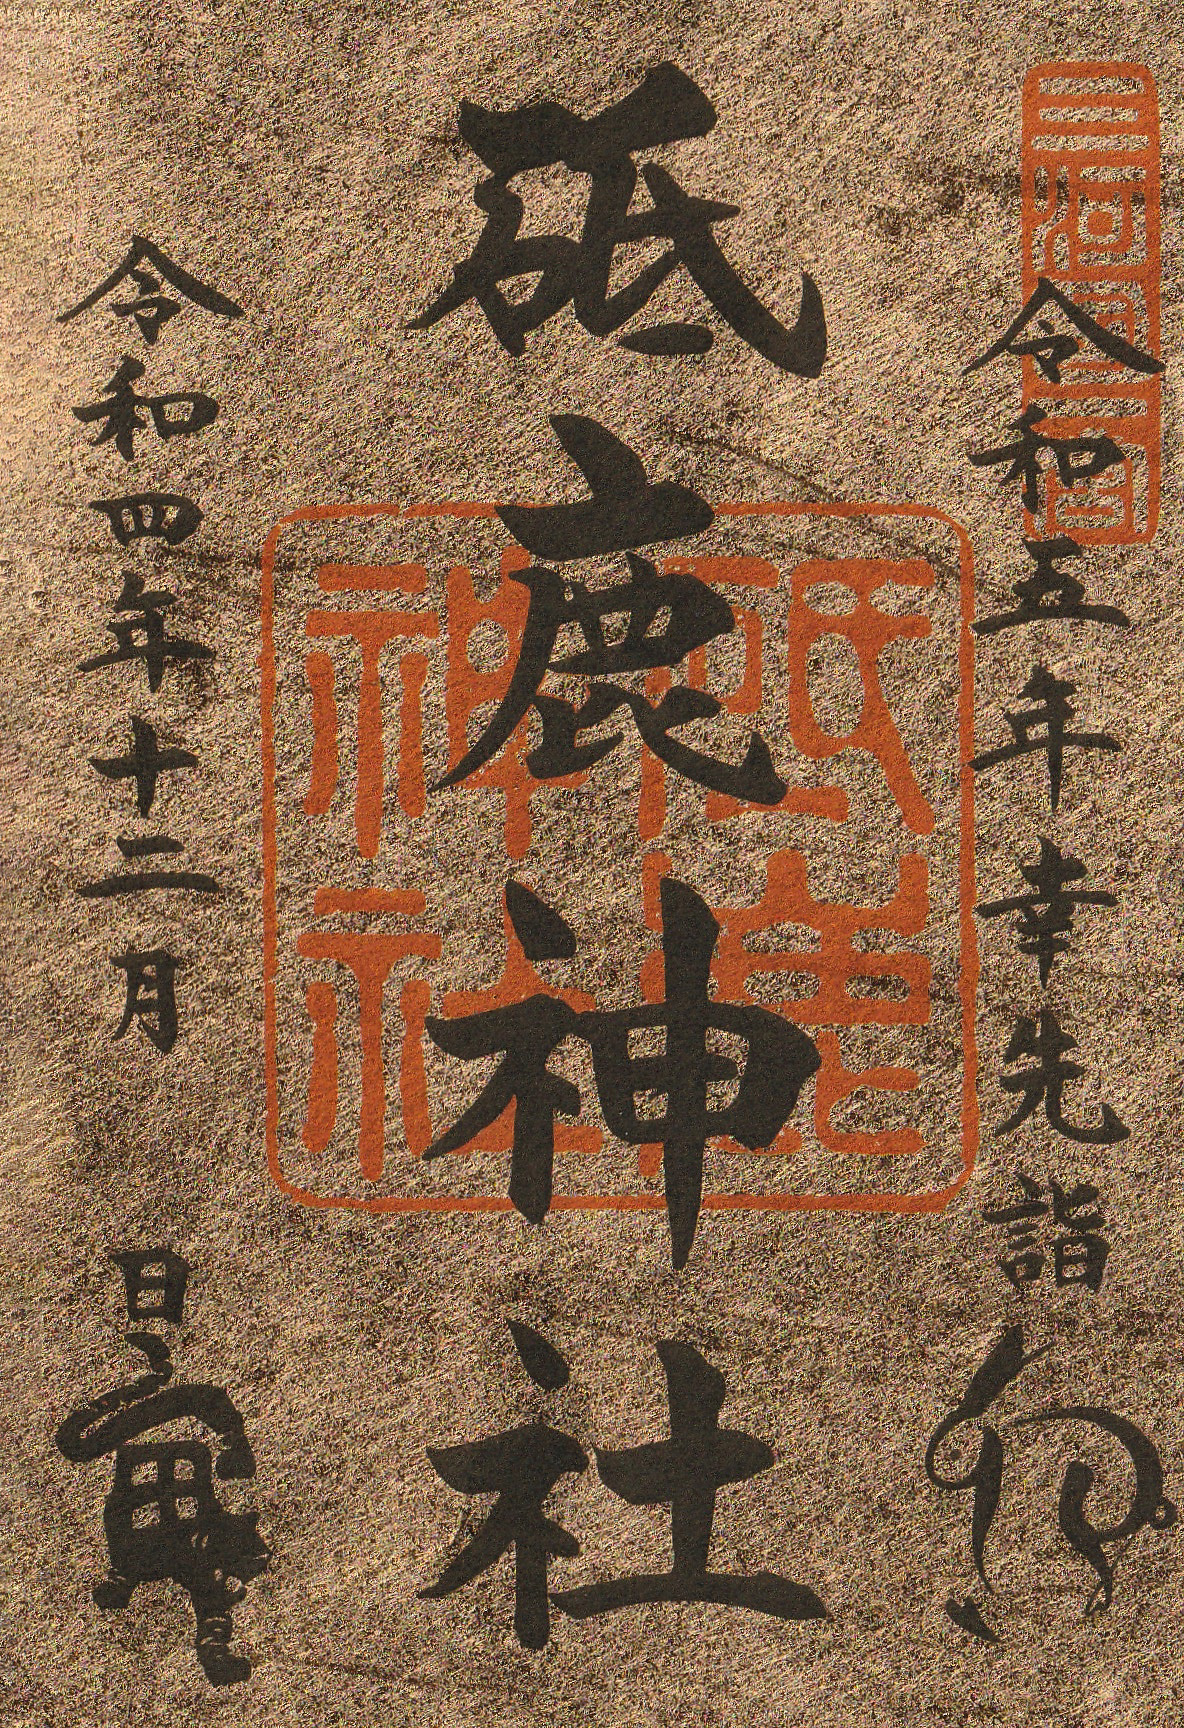 三河國一宮
令和五年幸先詣
卯
砥鹿神社
砥鹿神社
令和四年十二月 日
寅